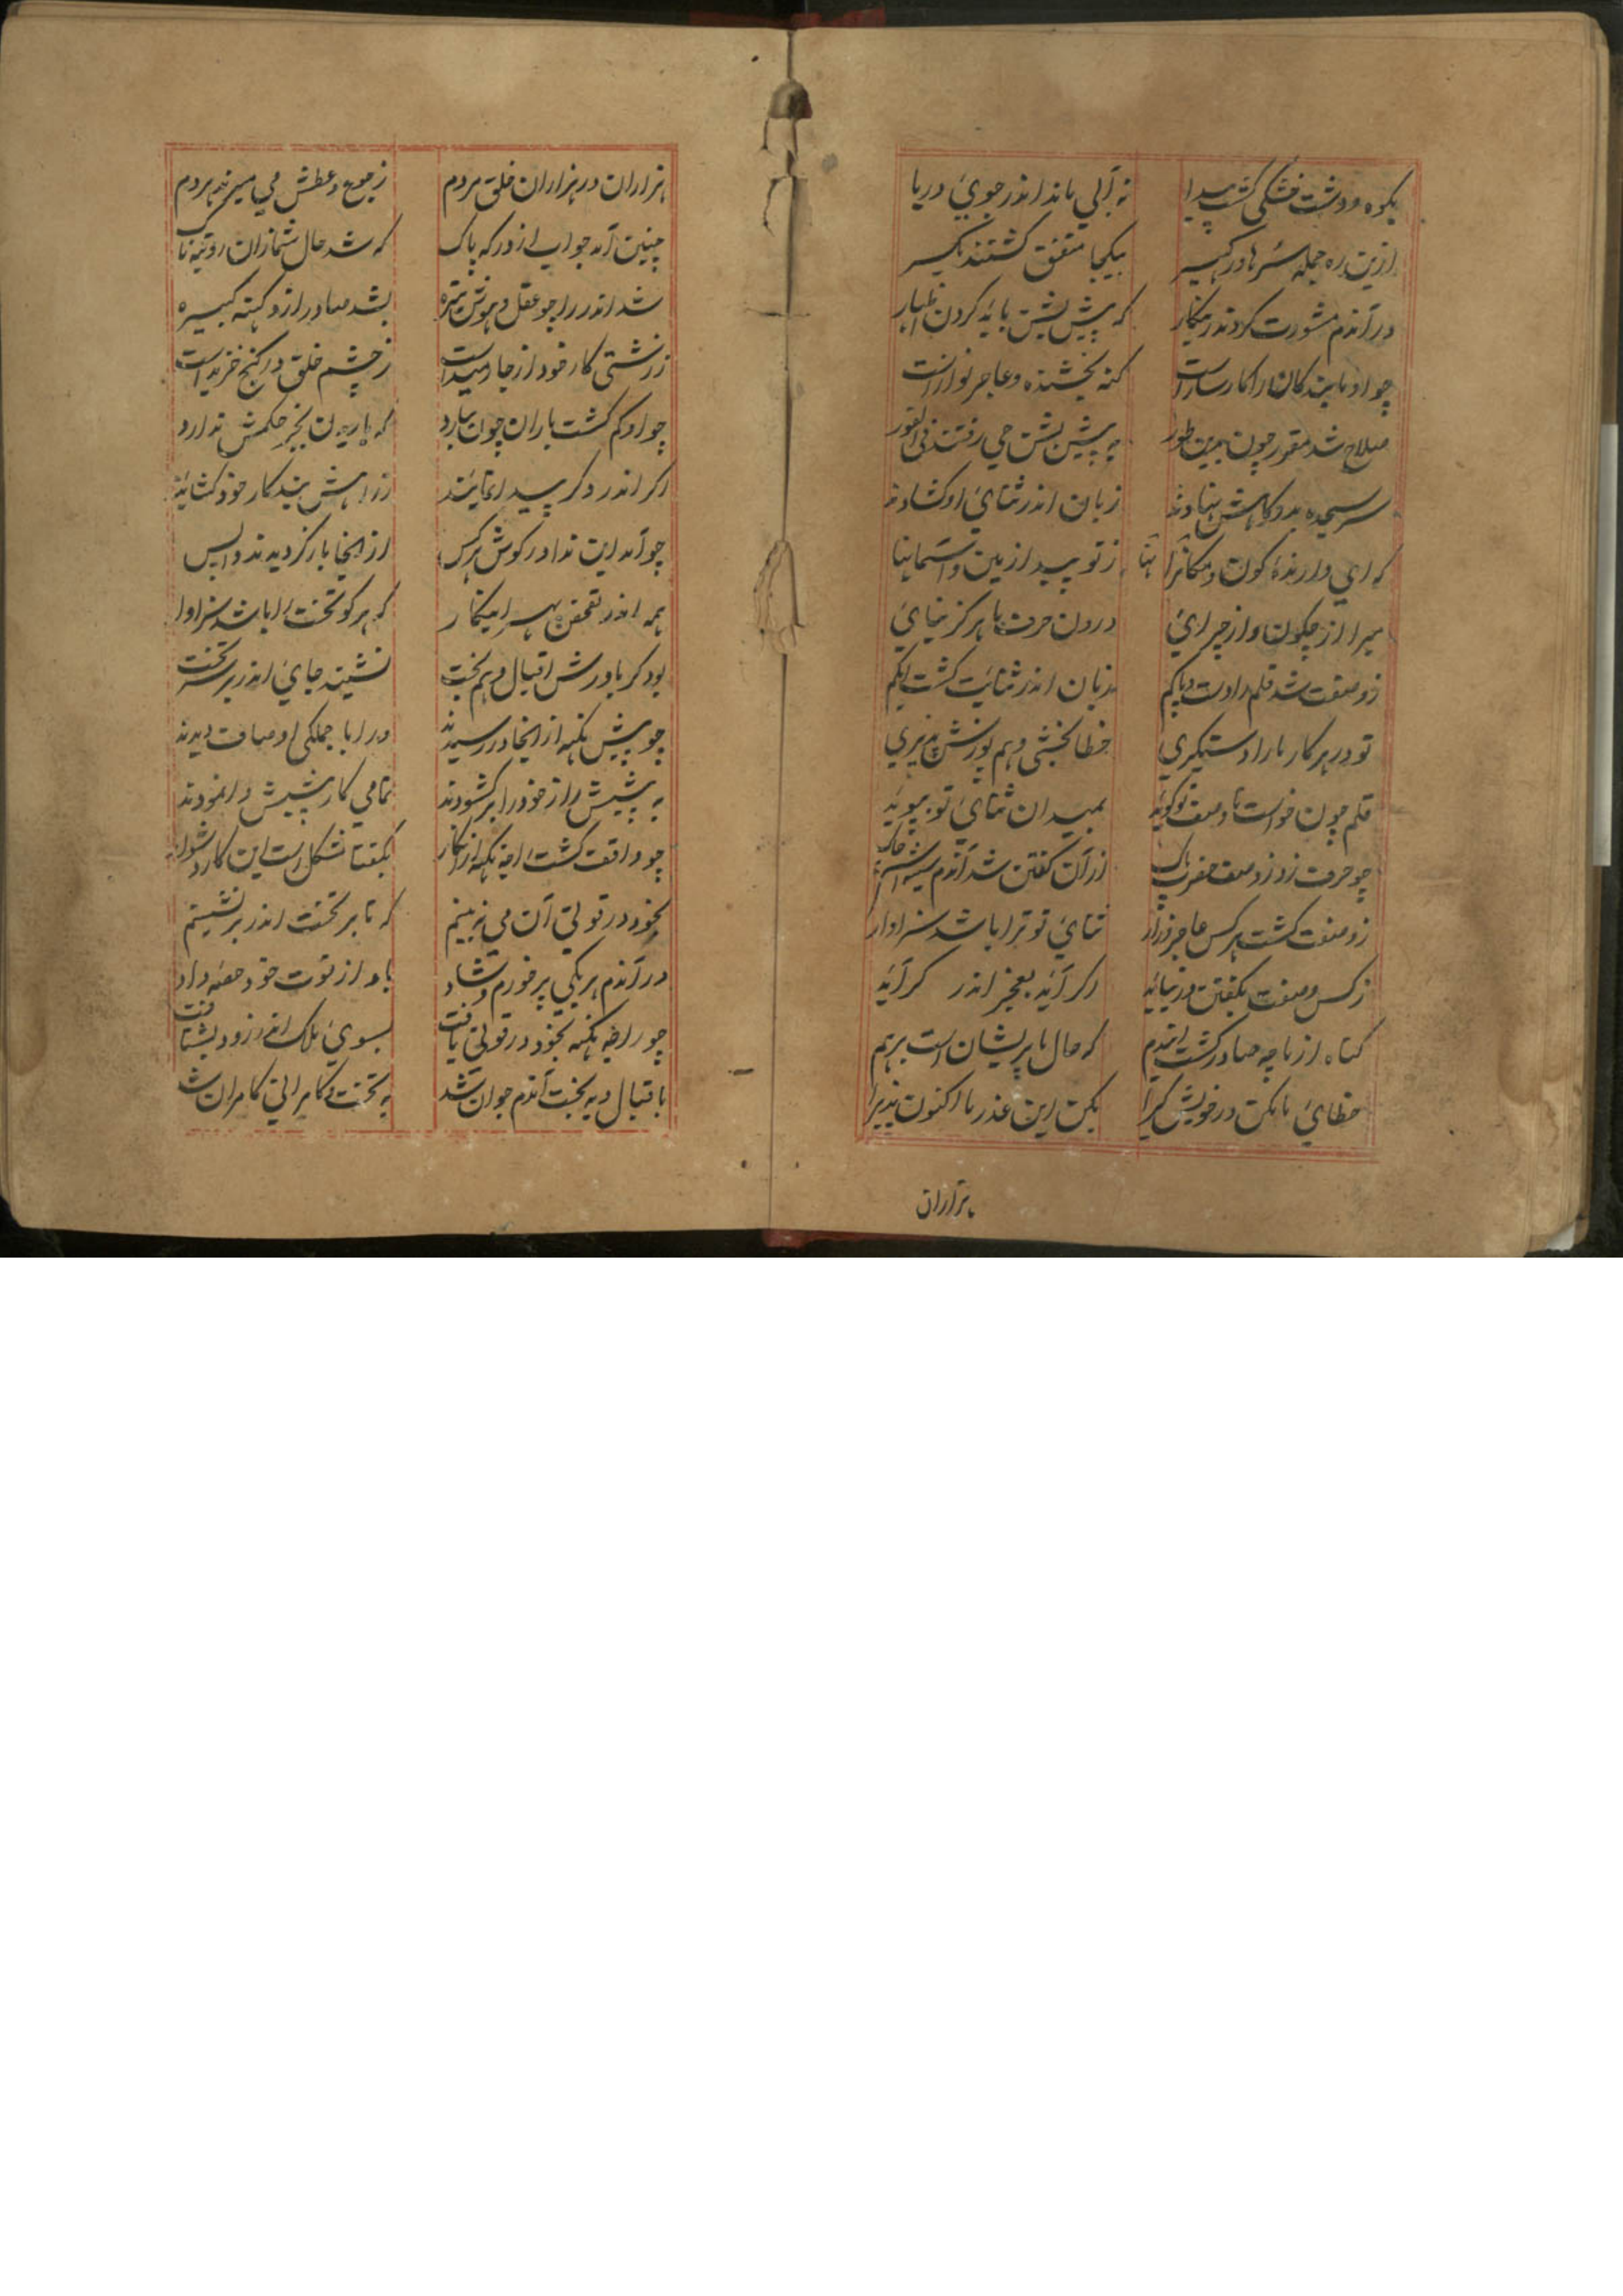 بکوه و دشت خشکی گشت پیدا نه آبی ماند اندر جوی دریا
ازین ره جمله سرها در بکجا متفق گشتند یکسر
درآندم مشورت کردند درینکار که پیش بشن باید کردن اظهار
چو او مابندکانرا کارسازاست کنه بخشنده و عاجز نوازاست
صلاح شد مقرر چون بدین طور به پیش بشن جی رفتند فی الفور
سر سجده بدرکاهش نهادند زبان اندر ثنای او کشادند
که ای دارندهٔ کون و مکانها ز تو پیدا زمین و آسمانها
مبرا از چکون و از چرائی درون حرف ما هرکز نیائی
ز وصفت شد قلم را دست و پا کم زبان اندر ثنایت کشت ابکم
تو در هر کار ما را دستکیری خطا بخشی و هم پوزش پذیری
قلم چون خواست تا وصف تو کوید بمیدان ثنای تو بپوید
چو حرف زد ز وصف حضرت پاک ازآن کفتن شد آندم سینه اش چاک
ز وصفت کشت هرکس عاجز و زار ثنای تو ترا باشد سزاوار
ز کس وصفت بکفتن در نیاید اکر آید بعجز اندر کر آید
کناه از ما چه صادر کشت ایندم که حال ما پریشان است برهم
خطای ما مکن در خویش کیرا بکن این عذر ما اکنون پذیرا
هزاران
هزاران در هزاران خلق مردم ز جوع و عطش می میرند هردم
چنین آمد جواب از درکه پاک که شد حال شما زان رو
شد اندر راجو عقل و هوش تیره بشد صادر ازو کنه کبیره
ز زشتی کار خود از جا رمیداست ز چشم خلق در کنج خزیداست
چو او کم کشت باران چون ببارد که باریدن بجز حکمش ندارد
اکر اندر دکر پیدا نمایند ز راهش بند کار خود کشایند
چو آمد این ندا در کوش هرکس از انجا باز کردیدند واپس
همه اندر تفحص بهر اینکار که هرکو تخت را باشد سزاوار
بود کر یاورش اقبال و هم بخت نشیند جای اندر بر سر تخت
چو پیش نکهه از انجا در رسیدند ورا با جملکی اوصاف دیدند
به پیشش راز خود را برکشودند تمامی کار پیشش وانمودند
چو واقف کشت راجه نکهه ازانکار بکفتا مشکل است این کار دشوار
بخود در قوتی آن می نبینم که تا بر تخت اندر بر نشینم
درآندم هریکی پر خورم و شاد باو از قوت خود حصه داد
چو راجه نکهه بخود در قوتی یافت بسوی ملک اندر زود بشتافت
باقبال و به بخت آندم جوان شد به تخت و کامرانی کامران شد